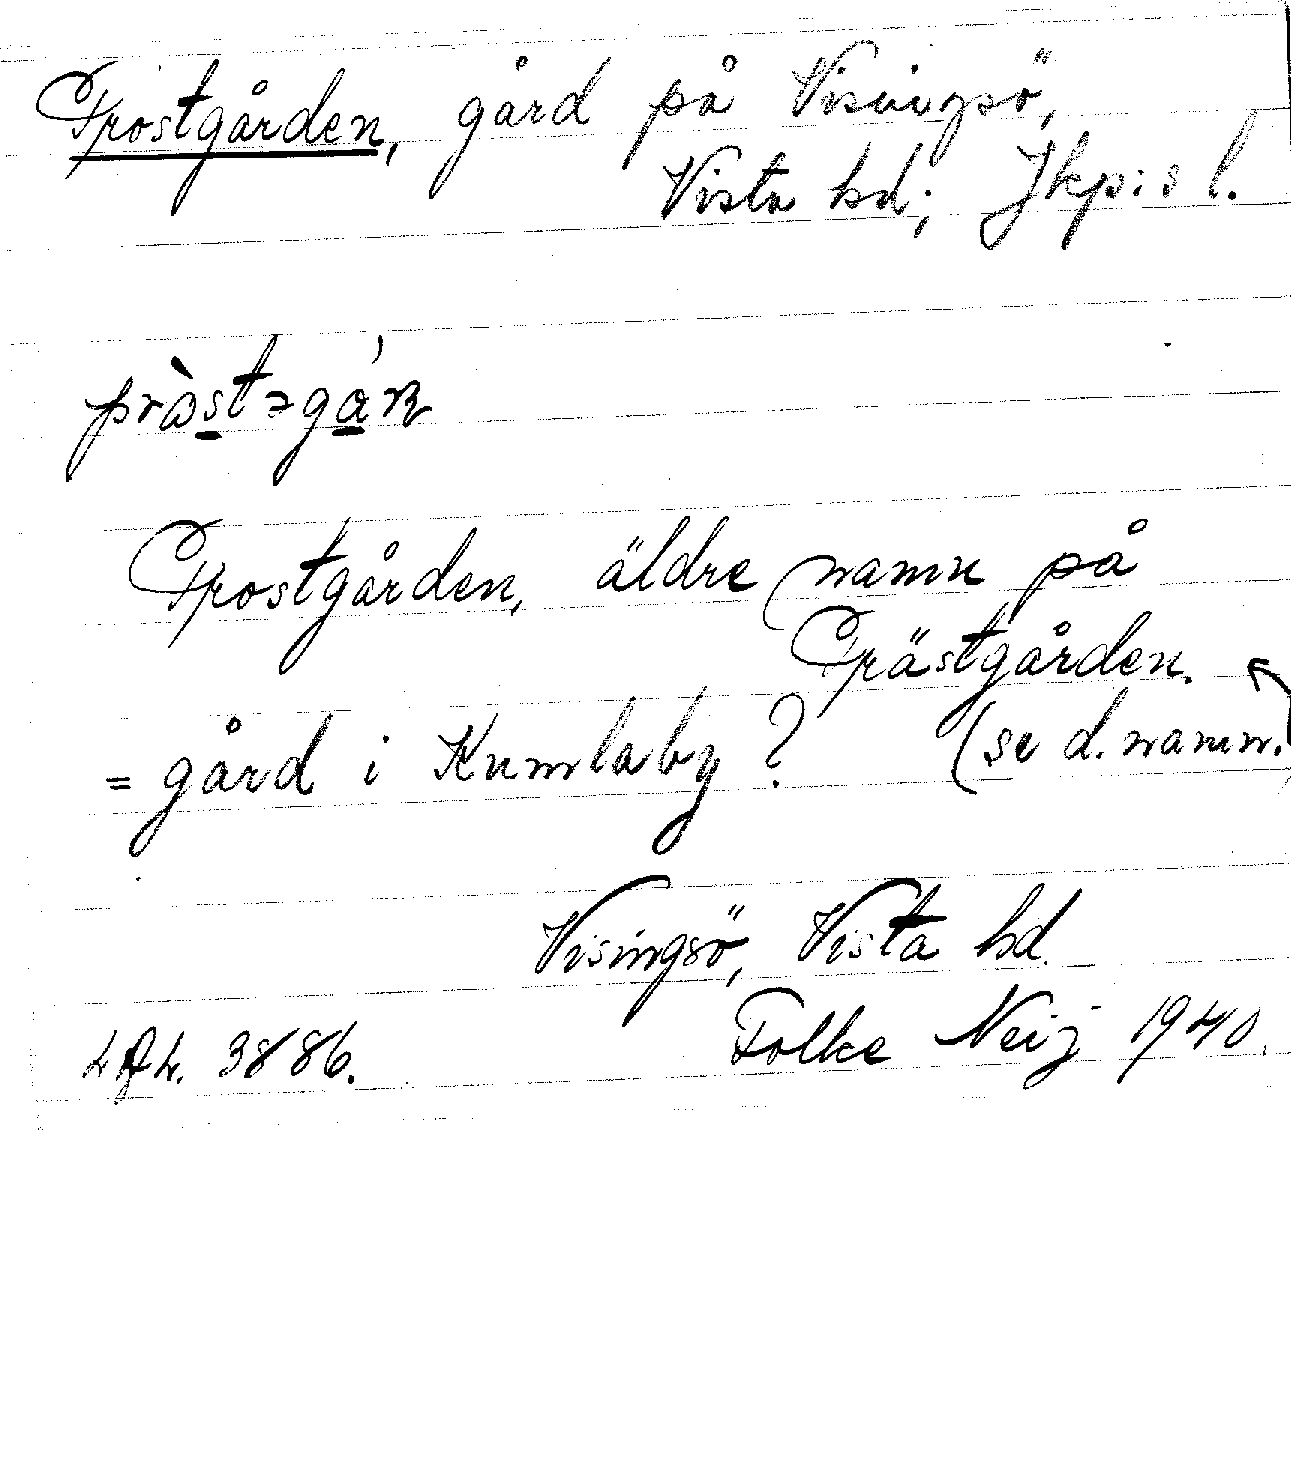 Prostgården, gård på Visingsö,
Vista hd; Jkp:s l.
Prostgården, äldre namn på
Prästgården.
= gård i Kumlaby? (se d. namn.)
Visingsö, Vista hd.
3886. Folke Neij 1940.